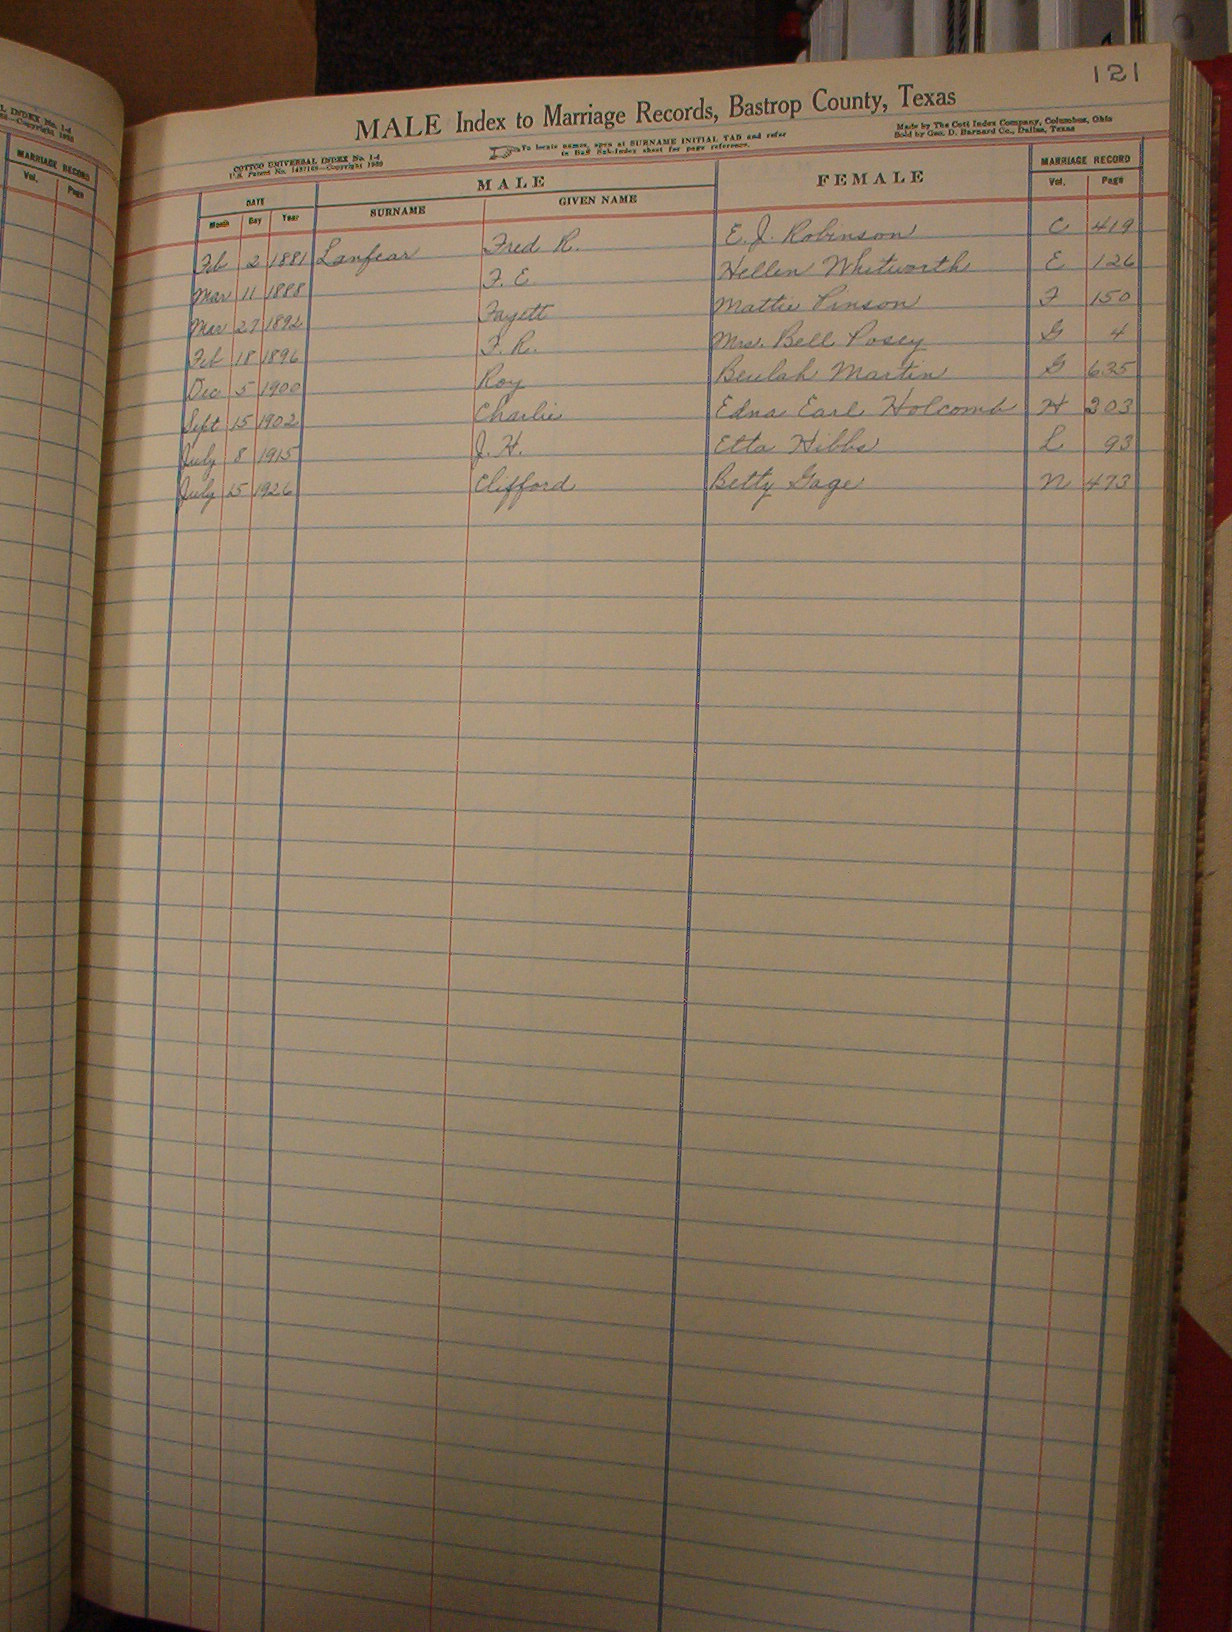 121
MALE Index to Marriage Records, Bastrop County, Texas
COTTCO UNIVERSAL INDEX No. 1-d
U.S. Patent No. 1497168—Copyright 1929
To locate names, open at SURNAME INITIAL TAB and refer
to Buff Sub-Index sheet for page reference.
Made by The Cott Index Company, Columbus, Ohio
Sold by Geo. D. Barnard Co., Dallas, Texas
DATE MALE FEMALE MARRIAGE RECORD
Month Day Year SURNAME GIVEN NAME Vol. Page
Feb 2 1881 Lanfear Fred R. E. J. Robinson C 419
Mar 11 1888 F. E. Hellen Whitworth E 126
Mar 27 1892 Fayett Mattie Pinson F 150
Feb 18 1896 F. R. Mrs. Bell Posey G 4
Dec 5 1900 Roy Beulah Martin G 635
Sept 15 1902 Charlie Edna Earl Holcomb H 203
July 8 1915 J. H. Etta Hibbs L 93
July 15 1926 Clifford Betty Gage N 473
L INDEX No. 1-d
Copyright 1929
MARRIAGE RECORD
Vol. Page